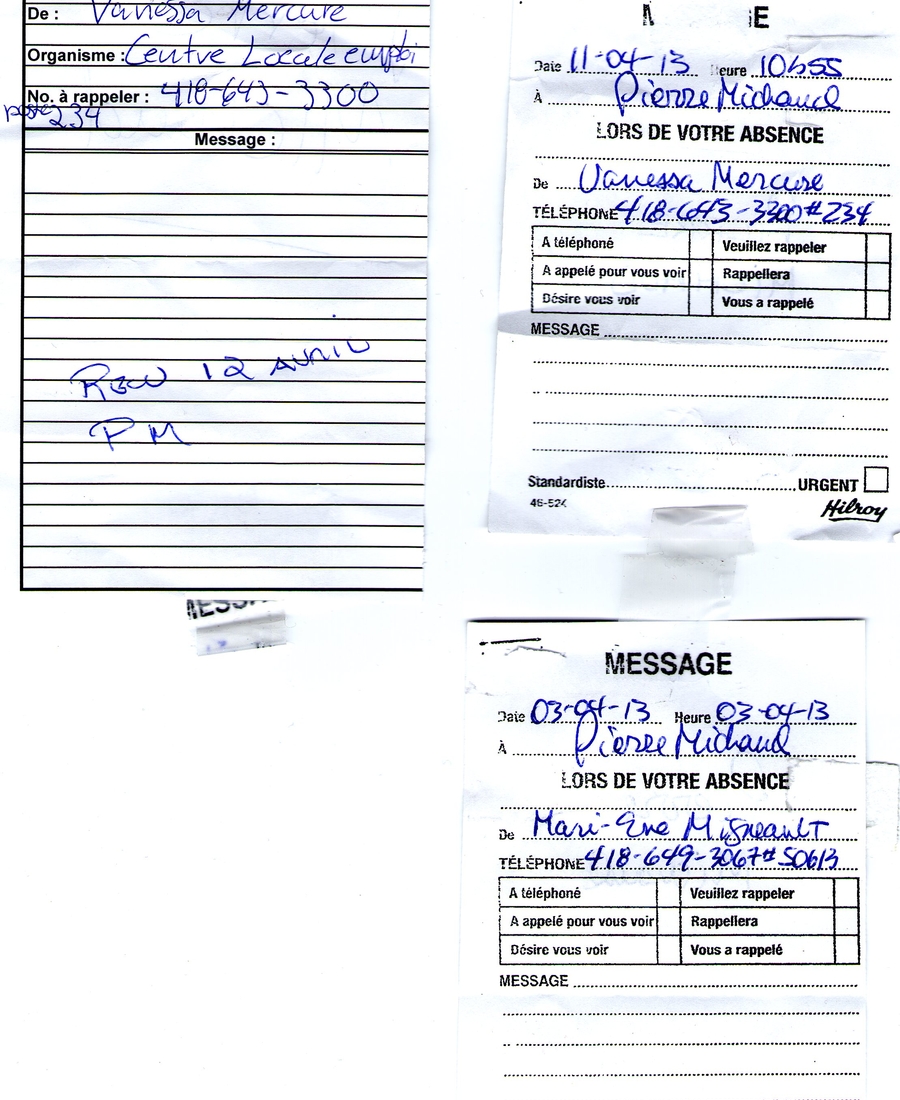 De : Vanessa Mercure
Organisme : Centre Locale emploi
No. à rappeler : 418-643-3300
poste 234
Message :
12 AVRIL
PM
Date 11-04-13 Heure 10h55
À Pierre Michaud
LORS DE VOTRE ABSENCE
De Vanessa Mercure
TÉLÉPHONE 418-643-3300 # 234
A téléphoné Veuillez rappeler
A appelé pour vous voir Rappellera
Désire vous voir Vous a rappelé
MESSAGE
Standardiste URGENT
46-524 Hilroy
MESSAGE
Date 03-04-13 Heure 03-04-13
À Pierre Michaud
LORS DE VOTRE ABSENCE
De Mari-Eve Migneault
TÉLÉPHONE 418-649-3067 # 50613
A téléphoné Veuillez rappeler
A appelé pour vous voir Rappellera
Désire vous voir Vous a rappelé
MESSAGE